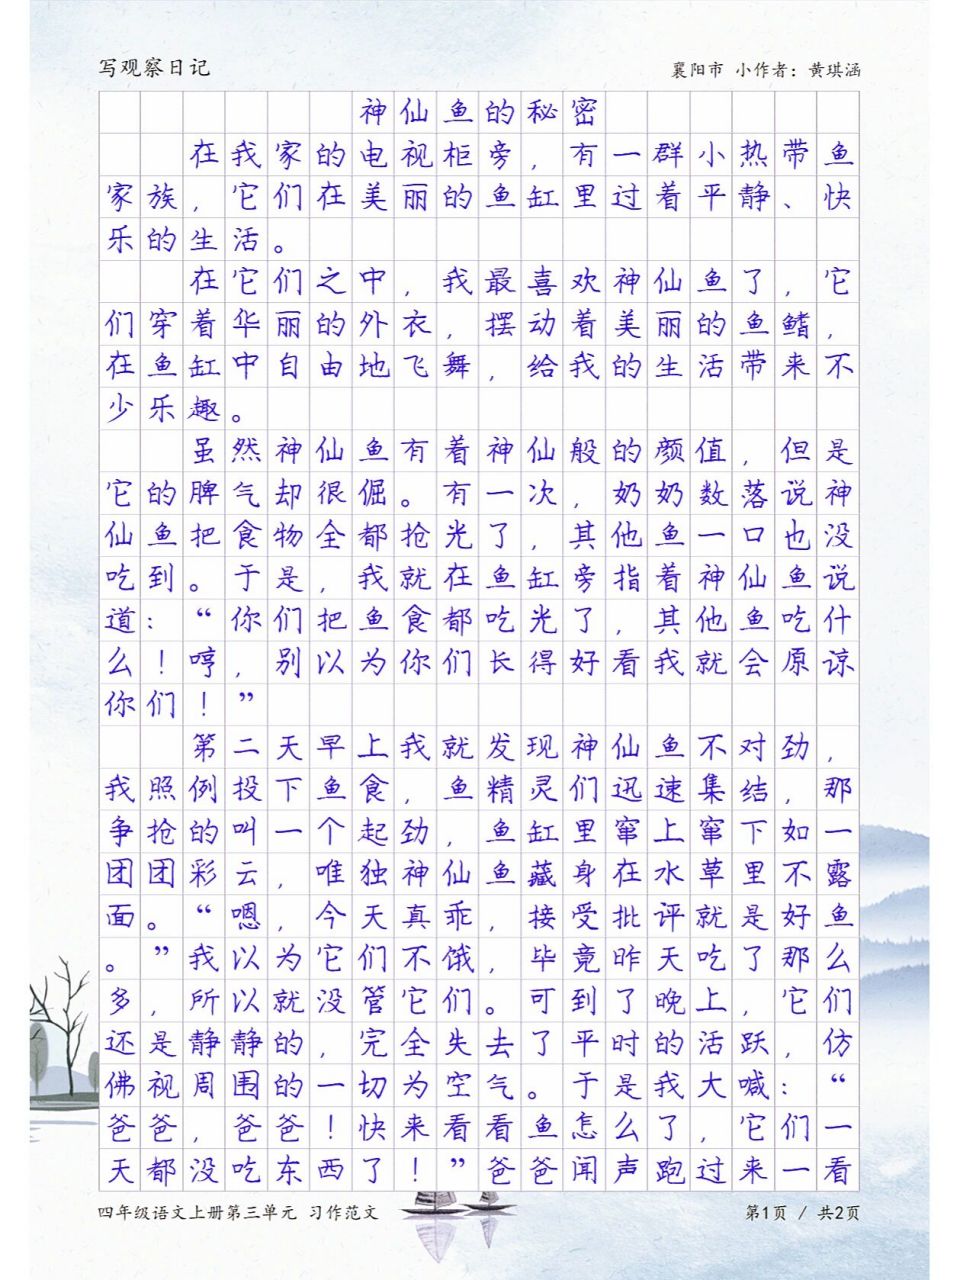 写观察日记
襄阳市 小作者：黄琪涵
神仙鱼的秘密
在我家的电视柜旁，有一群小热带鱼
家族，它们在美丽的鱼缸里过着平静、快
乐的生活。
在它们之中，我最喜欢神仙鱼了，它
们穿着华丽的外衣，摆动着美丽的鱼鳍，
在鱼缸中自由地飞舞，给我的生活带来不
少乐趣。
虽然神仙鱼有着神仙般的颜值，但是
它的脾气却很倔。有一次，奶奶数落说神
仙鱼把食物全都抢光了，其他鱼一口也没
吃到。于是，我就在鱼缸旁指着神仙鱼说
道：“你们把鱼食都吃光了，其他鱼吃什
么！哼，别以为你们长得好看我就会原谅
你们！”
第二天早上我就发现神仙鱼不对劲，
我照例投下鱼食，鱼精灵们迅速集结，那
争抢的叫一个起劲，鱼缸里窜上窜下如一
团团彩云，唯独神仙鱼藏身在水草里不露
面。“嗯，今天真乖，接受批评就是好鱼
。”我以为它们不饿，毕竟昨天吃了那么
多，所以就没管它们。可到了晚上，它们
还是静静的，完全失去了平时的活跃，仿
佛视周围的一切为空气。于是我大喊：“
爸爸，爸爸！快来看看鱼怎么了，它们一
天都没吃东西了！”爸爸闻声跑过来一看
四年级语文上册第三单元 习作范文
第1页 / 共2页